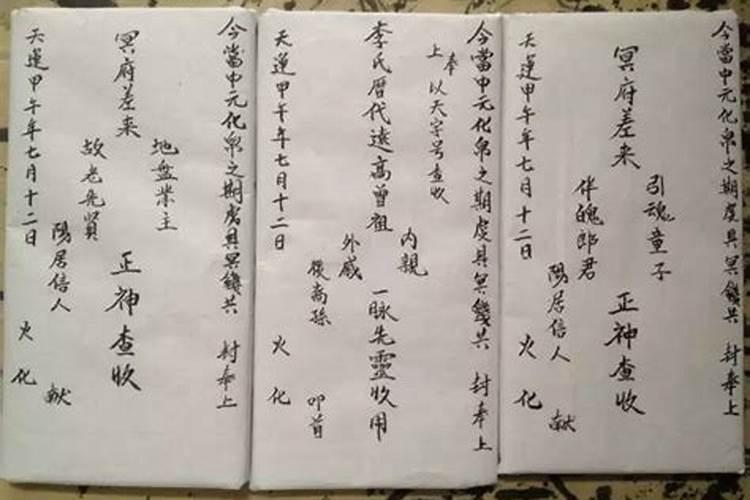 今當中元化帛之期虔具冥錢共 封奉上
引魂童子
冥府差来 正神查收
伴魄郎君
陽居信人 献
天運甲午年七月十二日 火化
今當中元化帛之期虔具冥錢共 封奉上
奉
上 以天字号查收
李氏曆代遠高曾祖 內親 外戚 一脉先靈收用
後裔孫 叩首
天運甲午年七月十二日 火化
今當中元化帛之期虔具冥錢共 封奉上
地盤業主
冥府差来 正神查收
故老先賢
陽居信人 献
天運甲午年七月十二日 火化